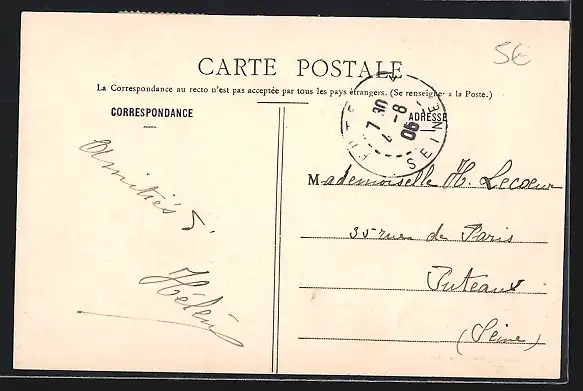 5€
CARTE POSTALE
La Correspondance au recto n'est pas acceptée par tous les pays étrangers. (Se renseigner à la Poste.)
CORRESPONDANCE
ADRESSE
7 30
4 -8
06
SEINE
Amitiés
Hélène
Mademoiselle H. Lecoeur
35 rue de Paris
Puteaux
(Seine)